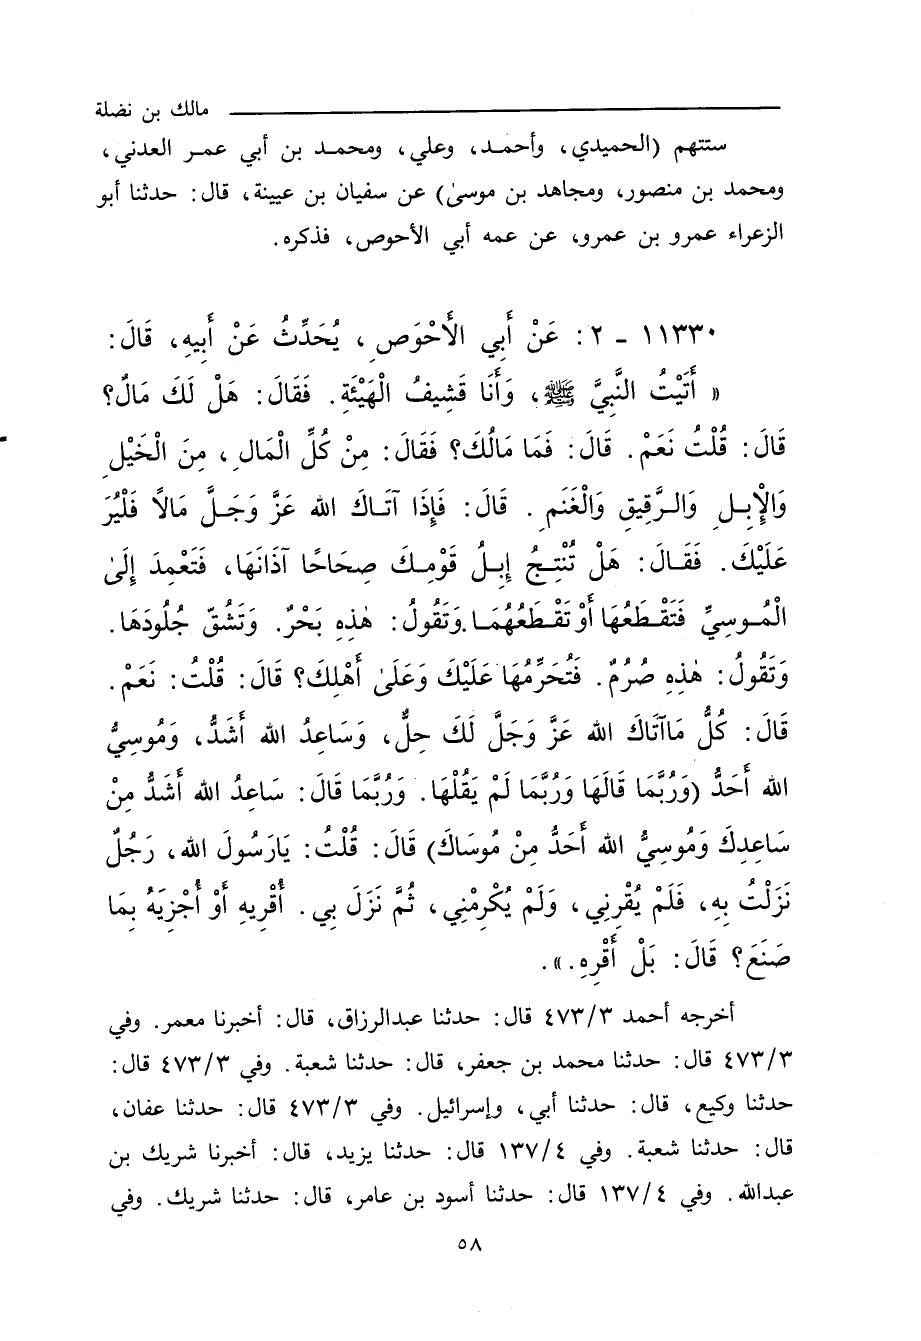 مالك بن نضلة
ستتهم (الحميدي، وأحمد، وعلي، ومحمد بن أبي عمر العدني،
ومحمد بن منصور، ومجاهد بن موسىٰ) عن سفيان بن عيينة، قال: حدثنا أبو
الزعراء عمرو بن عمرو، عن عمه أبي الأحوص، فذكره.
١١٣٣٠ ـ ٢: عَنْ أَبِي الأَحْوَصِ، يُحَدِّثُ عَنْ أَبِيهِ، قَالَ:
« أَتَيْتُ النَّبِيَّ ﷺ، وَأَنَا قَشِيفُ الْهَيْئَةِ. فَقَالَ: هَلْ لَكَ مَالٌ؟
قَالَ: قُلْتُ نَعَمْ. قَالَ: فَمَا مَالُكَ؟ فَقَالَ: مِنْ كُلِّ الْمَالِ، مِنَ الْخَيْلِ
وَالإِبِلِ وَالرَّقِيقِ وَالْغَنَمِ. قَالَ: فَإِذَا آتَاكَ الله عَزَّ وَجَلَّ مَالاً فَلْيُرَ
عَلَيْكَ. فَقَالَ: هَلْ تُنْتِجُ إِبِلُ قَوْمِكَ صِحَاحًا آذَانَهَا، فَتَعْمِدَ إِلَىٰ
الْمُوسِيِّ فَتَقْطَعُهَا أَوْ تَقْطَعُهُمَا. وَتَقُولُ: هٰذِهِ بَحْرٌ. وَتَشُقّ جُلُودَهَا.
وَتَقُولُ: هٰذِهِ صُرُمٌ. فَتُحَرِّمُهَا عَلَيْكَ وَعَلَىٰ أَهْلِكَ؟ قَالَ: قُلْتُ: نَعَمْ.
قَالَ: كُلُّ مَاآتَاكَ الله عَزَّ وَجَلَّ لَكَ حِلٌّ، وَسَاعِدُ الله أَشَدُّ، وَمُوسِيُّ
الله أَحَدُّ (وَرُبَّمَا قَالَهَا وَرُبَّمَا لَمْ يَقُلْهَا. وَرُبَّمَا قَالَ: سَاعِدُ الله أَشَدُّ مِنْ
سَاعِدِكَ وَمُوسِيُّ الله أَحَدُّ مِنْ مُوسَاكَ) قَالَ: قُلْتُ: يَارَسُولَ الله، رَجُلٌ
نَزَلْتُ بِهِ، فَلَمْ يُقْرِنِي، وَلَمْ يُكْرِمْنِي، ثُمَّ نَزَلَ بِي. أُقْرِيهِ أَوْ أُجْزِيَهُ بِمَا
صَنَعَ؟ قَالَ: بَلْ أَقْرِهِ.».
أخرجه أحمد ٤٧٣/٣ قال: حدثنا عبدالرزاق، قال: أخبرنا معمر. وفي
٤٧٣/٣ قال: حدثنا محمد بن جعفر، قال: حدثنا شعبة. وفي ٤٧٣/٣ قال:
حدثنا وكيع، قال: حدثنا أبي، وإسرائيل. وفي ٤٧٣/٣ قال: حدثنا عفان،
قال: حدثنا شعبة. وفي ١٣٧/٤ قال: حدثنا يزيد، قال: أخبرنا شريك بن
عبدالله. وفي ١٣٧/٤ قال: حدثنا أسود بن عامر، قال: حدثنا شريك. وفي
٥٨